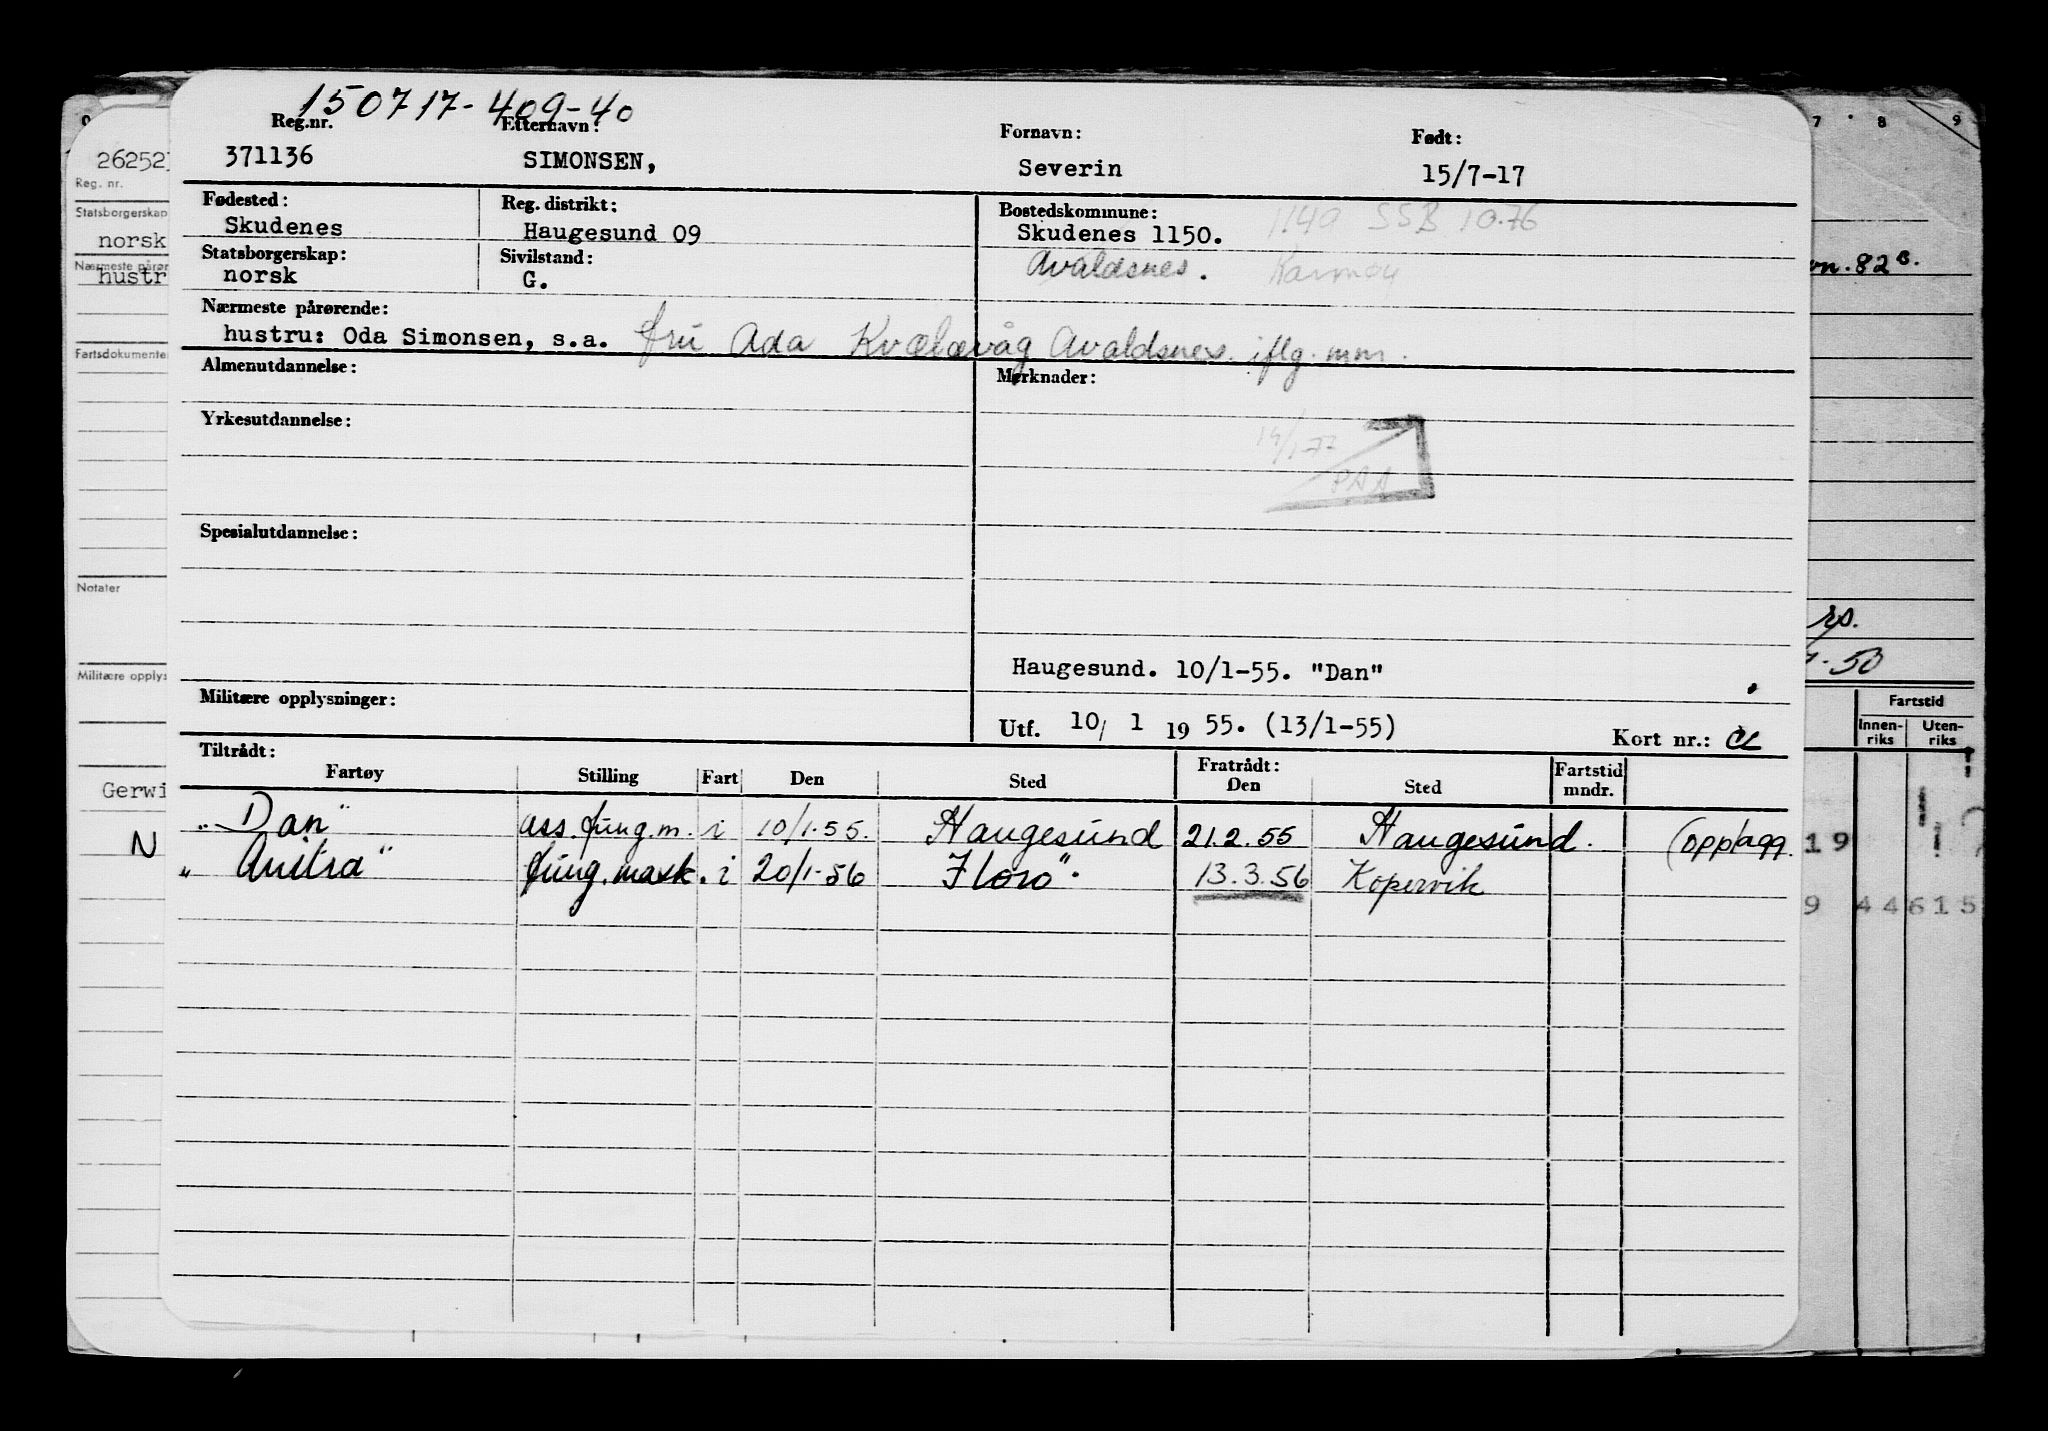 150717-409-40
Reg.nr. Etternavn: Fornavn: Født:
371136 SIMONSEN, Severin 15/7-17
Fødested: Reg. distrikt: Bostedskommune:
Skudenes Haugesund 09 Skudenes 1150. 1149 SSB 10.76
Statsborgerskap: Sivilstand: Avaldsnes. Karmøy
norsk G.
Nærmeste pårørende:
hustru: Oda Simonsen, s.a. fru Ada Kvalavåg Avaldsnes. iflg. mm.
Almenutdannelse: Merknader:
Yrkesutdannelse:
14/1-77
PAA
Spesialutdannelse:
Haugesund. 10/1-55. "Dan"
Militære opplysninger:
Utf. 10/ 1 19 55. (13/1-55) Kort nr.:
Tiltrådt: Fratrådt:
Fartøy Stilling Fart Den Sted Den Sted Fartstid mndr.
"Dan" ass. fung. m. i 10/1-55. Haugesund 21.2.55 Haugesund. (opplagg.
"Anitra" fung. mask. i 20/1-56 Florø 13.3.56 Kopervik
26252
Reg. nr.
Statsborgerskap
norsk
Nærmeste pårør
hustr
Fartsdokumente
Notater
Militære opplys
Gerwi
N
7 8 9
on. 82 B.
rs.
-50
Fartstid
Innen-riks Uten-riks
19
9 44615